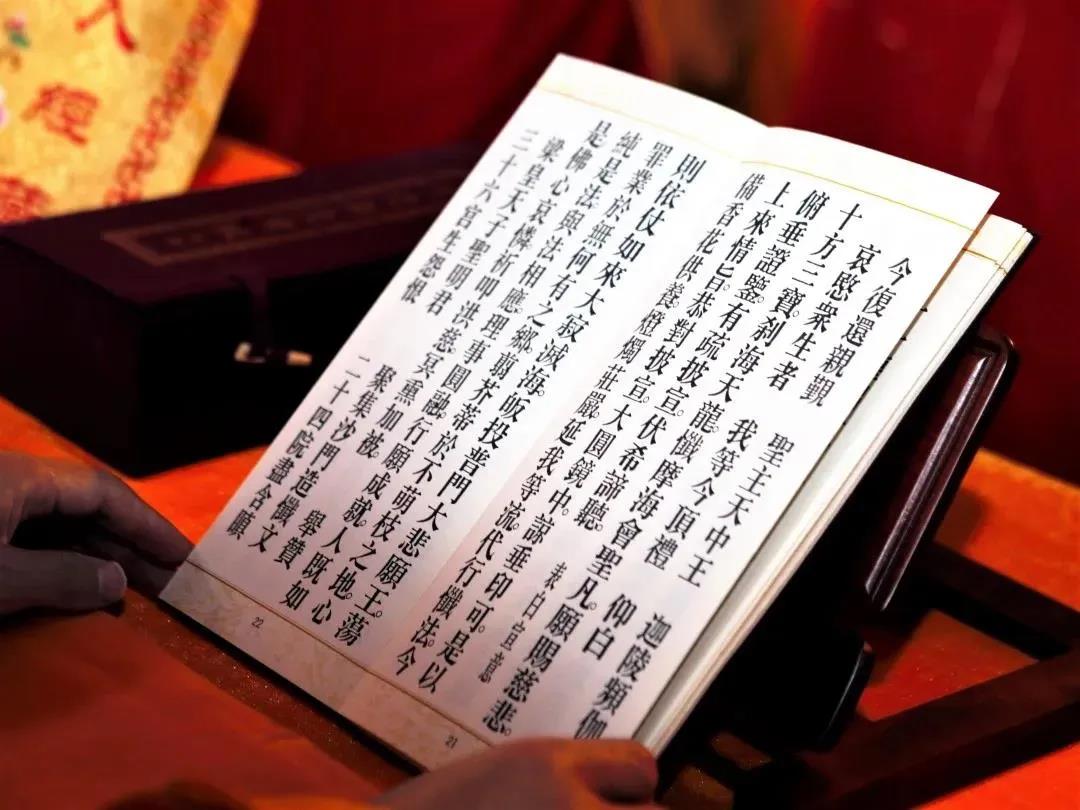 今復還親覲 聖主天中王 迦陵頻伽
哀愍衆生者 我等今頂禮 仰白
十方三寶。刹海天龍。懺摩海會聖凡。願賜慈悲。
俯垂證鑒。有疏披宣。伏希諦聽。 表白宣意
上來情旨。恭對披宣。大圓鏡中。諒垂印可。今
備香花供養。燈燭莊嚴。延我等流。代行懺法。是以
21
則依仗如來大寂滅海。皈投普門大悲願王。蕩
罪業於無何有之鄉。翦芥蒂於不萌枝之地。心
純是法。與法相應。理事圓融。行願成就。人既
是佛。心哀憐祈叩洪慈冥熏加被 舉贊如
梁皇天子聖明君 聚集沙門造懺文
三十六宮生怨恨 二十四院盡含願
22
經